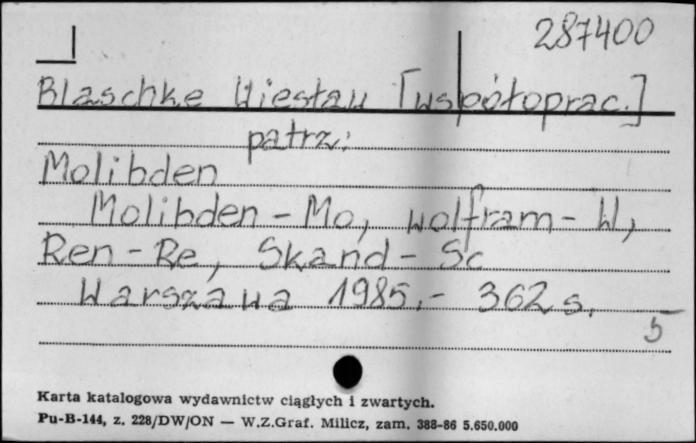 287400
Blaschke Wiesław [współoprac.]
patrz:
Molibden
Molibden - Mo, wolfram - W,
Ren - Re, Skand - Sc
Warszawa 1985.- 362 s.
5
Karta katalogowa wydawnictw ciągłych i zwartych.
Pu-B-144, z. 228/DW/ON — W.Z.Graf. Milicz, zam. 388-86 5.650.000